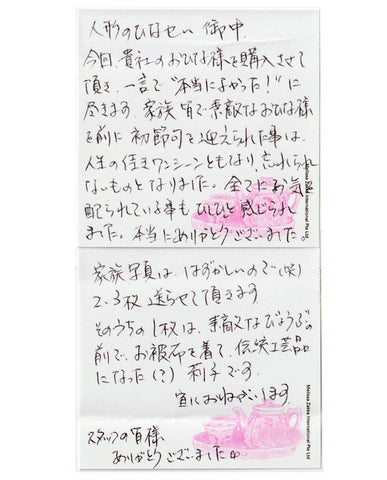 人形のひなせい 御中
今回、貴社のおひな様を購入させて
頂き、一言で"本当によかった!"に
尽きます。家族皆で素敵なおひな様
を前に初節句を迎えられた事は、
人生の佳きワンシーンともなり、忘れられ
ないものとなりました。全てにお気
配られている事も ひしひと感じられ
ました。本当にありがとうございました。
Melissa Zakka International Pte Ltd
家族写真は、はずかしいので(笑)
2、3枚 送らせて頂きます
そのうちの1枚は、素敵なびょうぶの
前で、お被布を着て、伝統工芸品
になった(?) 莉子です。
宜しくおねがいします
スタッフの皆様
ありがとうございました。
Melissa Zakka International Pte Ltd